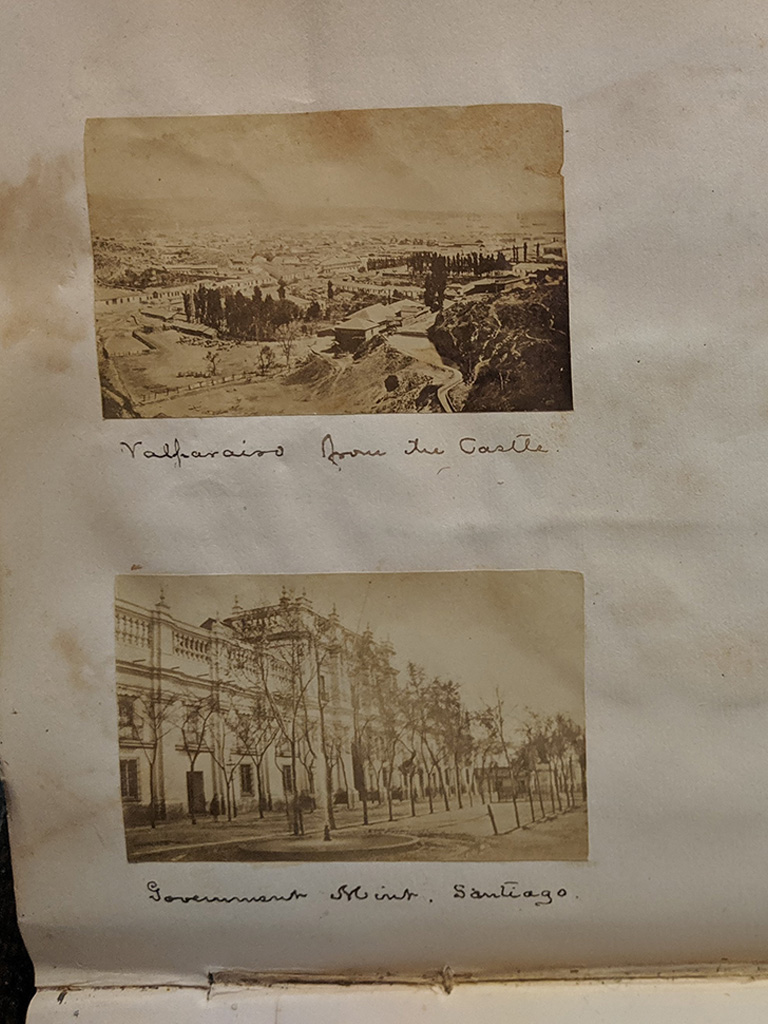 Valparaiso from the Castle.
Government Mint, Santiago.